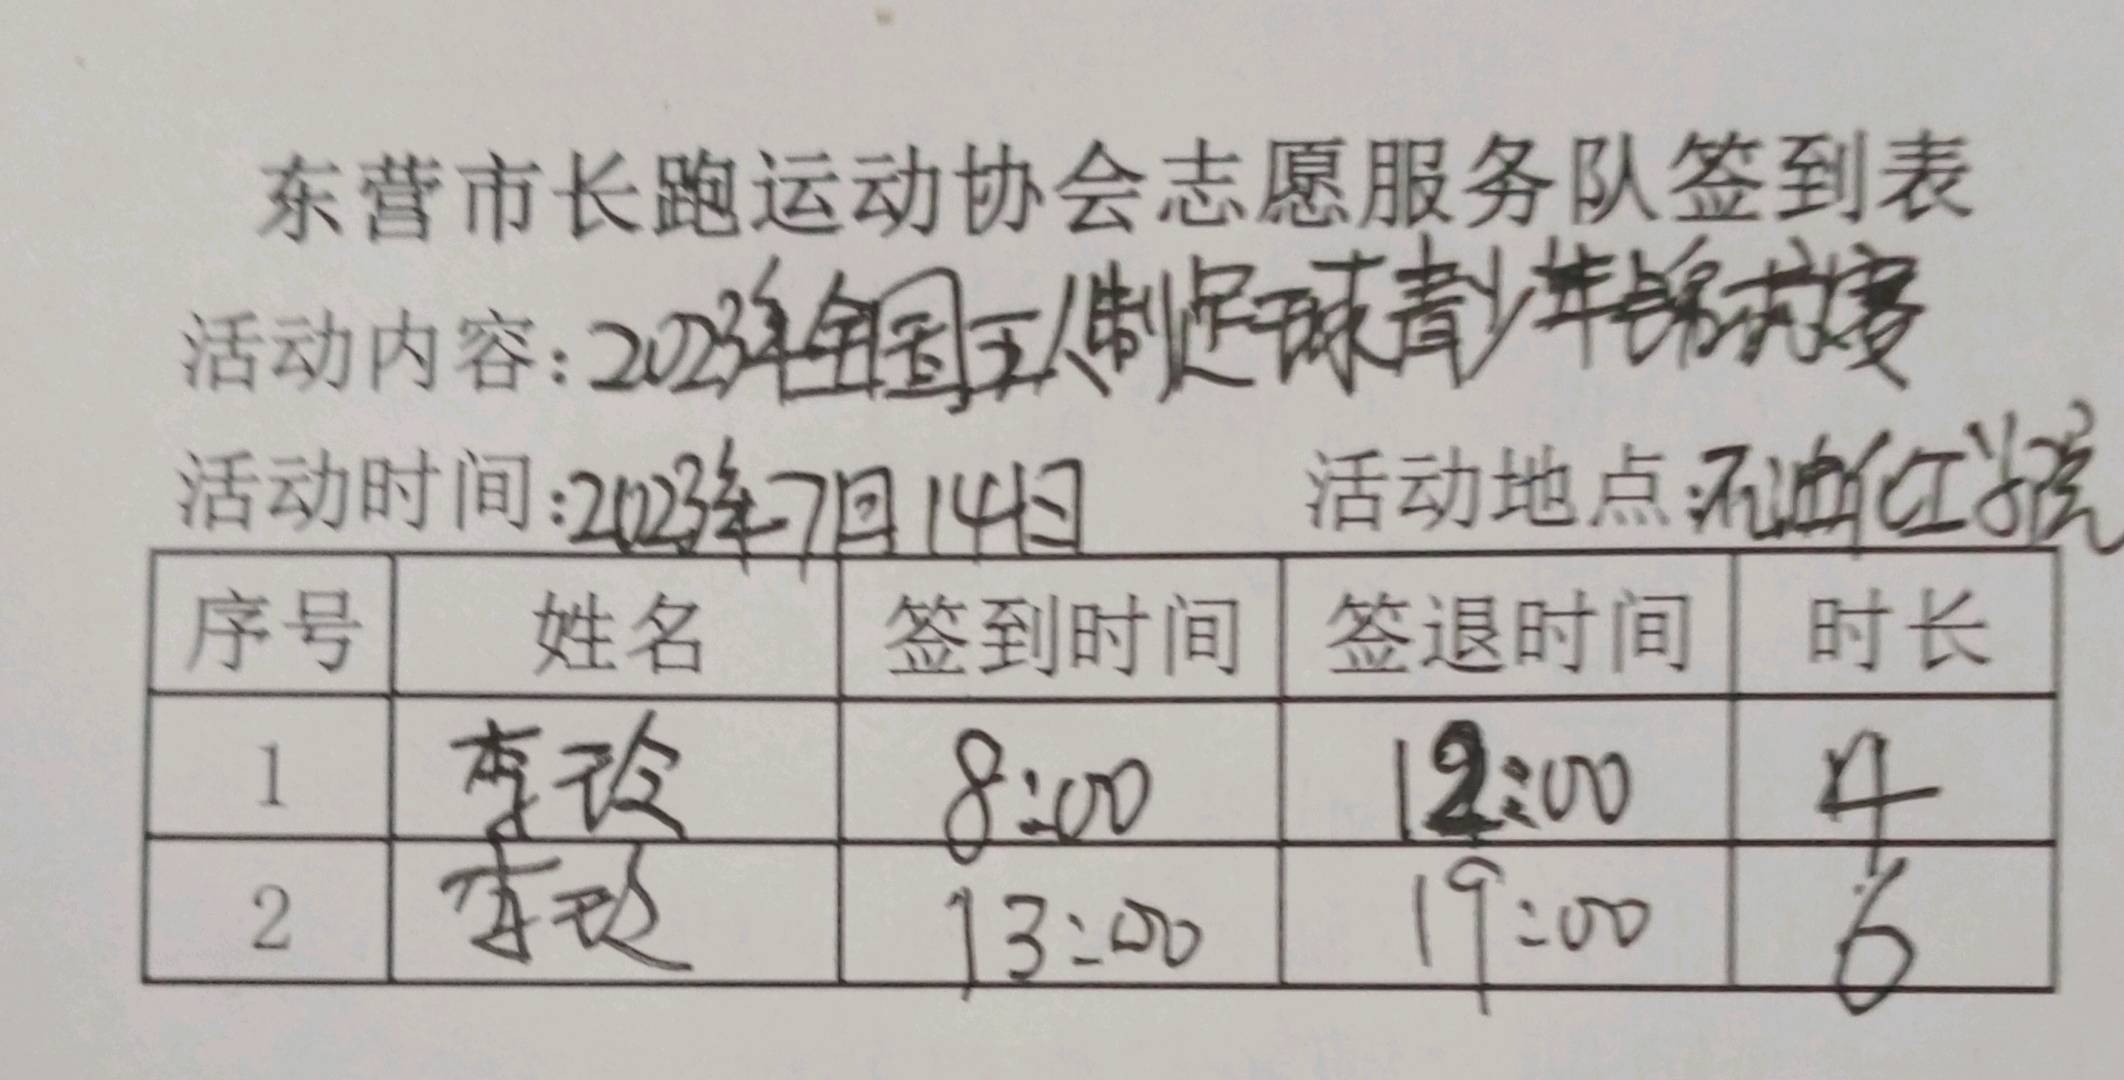 东营市长跑运动协会志愿服务队签到表
活动内容:2023年全国五人制足球青少年锦标赛
活动时间:2023年7月14日 活动地点:石油化工学院
序号 姓名 签到时间 签退时间 时长
1 李玲 8:00 12:00 4
2 李玲 13:00 19:00 6